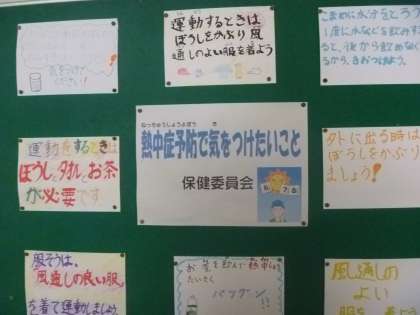 運動するときは
ぼうしをかぶり風
通しのよい服を着よう
こまめに水分をとろう
1度に水などを飲みす
ると、後から飲めなく
るから、きをつけよう。
運動をするときは
ぼうし、タオル、お茶
が必要です
ねっちゅうしょうよぼう き
熱中症予防で気をつけたいこと
保健委員会
外に出る時は
ぼうしをかぶり
ましょう!
服そうは、
風通しの良い服
を着て運動しましょう
お茶を飲んで熱中しょう
たいさく
バッチグー!!
風通しの
よい
服を